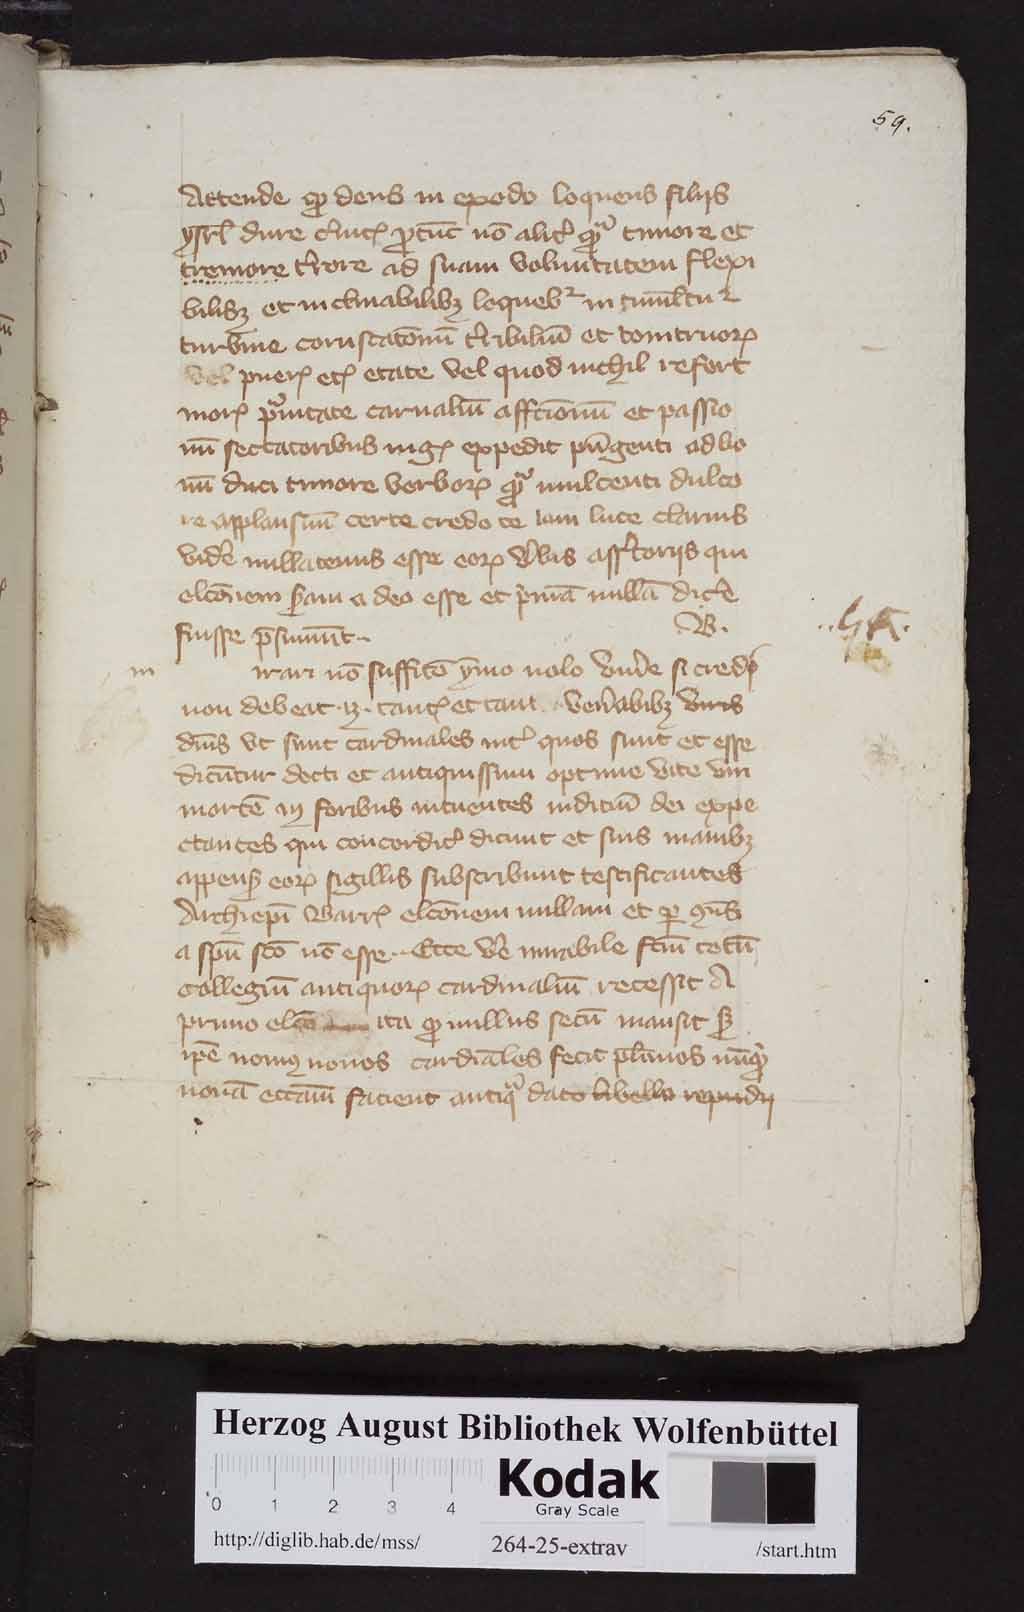 59.
Attende quod deus in exodo loquens filiis
ysrl dure ac non aliter quam timore et
tremore terrore ad suam voluntatem flexi
bilibus et inclinabilibus loquebatur in tumultu
turbine coruscationum terribilium et tonitruorum
vel etate vel quod nichil refert
morum carnalium affectionum et passio
num sectatoribus magis expedit pungenti ad bo
num duci timore verborum quam mulcenti dulco
re applausuum certe credo te iam luce clarius
videre nullatenus esse eorum verbis assertoriis qui
electionem a deo esse et primam nullam dicere
fuisse presumunt
.B.
m
irari non sufficio ymo nolo unde si credi
non debeat tantis et venerabilibus viris
dominis ut sunt cardinales inter quos sunt et esse
dicuntur docti et antiquissimi optime vite viri
mortem in foribus intuentes iuditium dei expe
ctantes qui concorditer dicunt et suis manibus
appensis eorum sigillis subscribunt testificantes
Archiepi Barrensis electionem nullam et per consequens
a spiritu sancto non esse Ecce vere mirabile factum totum
collegium antiquorum cardinalium recessit A
primo electo ita quod nullus secum mansit sed
ipse nouus nouos cardinales fecit
nouam ecclesiam facient antiqua dato libello repudii
Herzog August Bibliothek Wolfenbüttel
0 1 2 3 4
Kodak
Gray Scale
http://diglib.hab.de/mss/ 264-25-extrav /start.htm